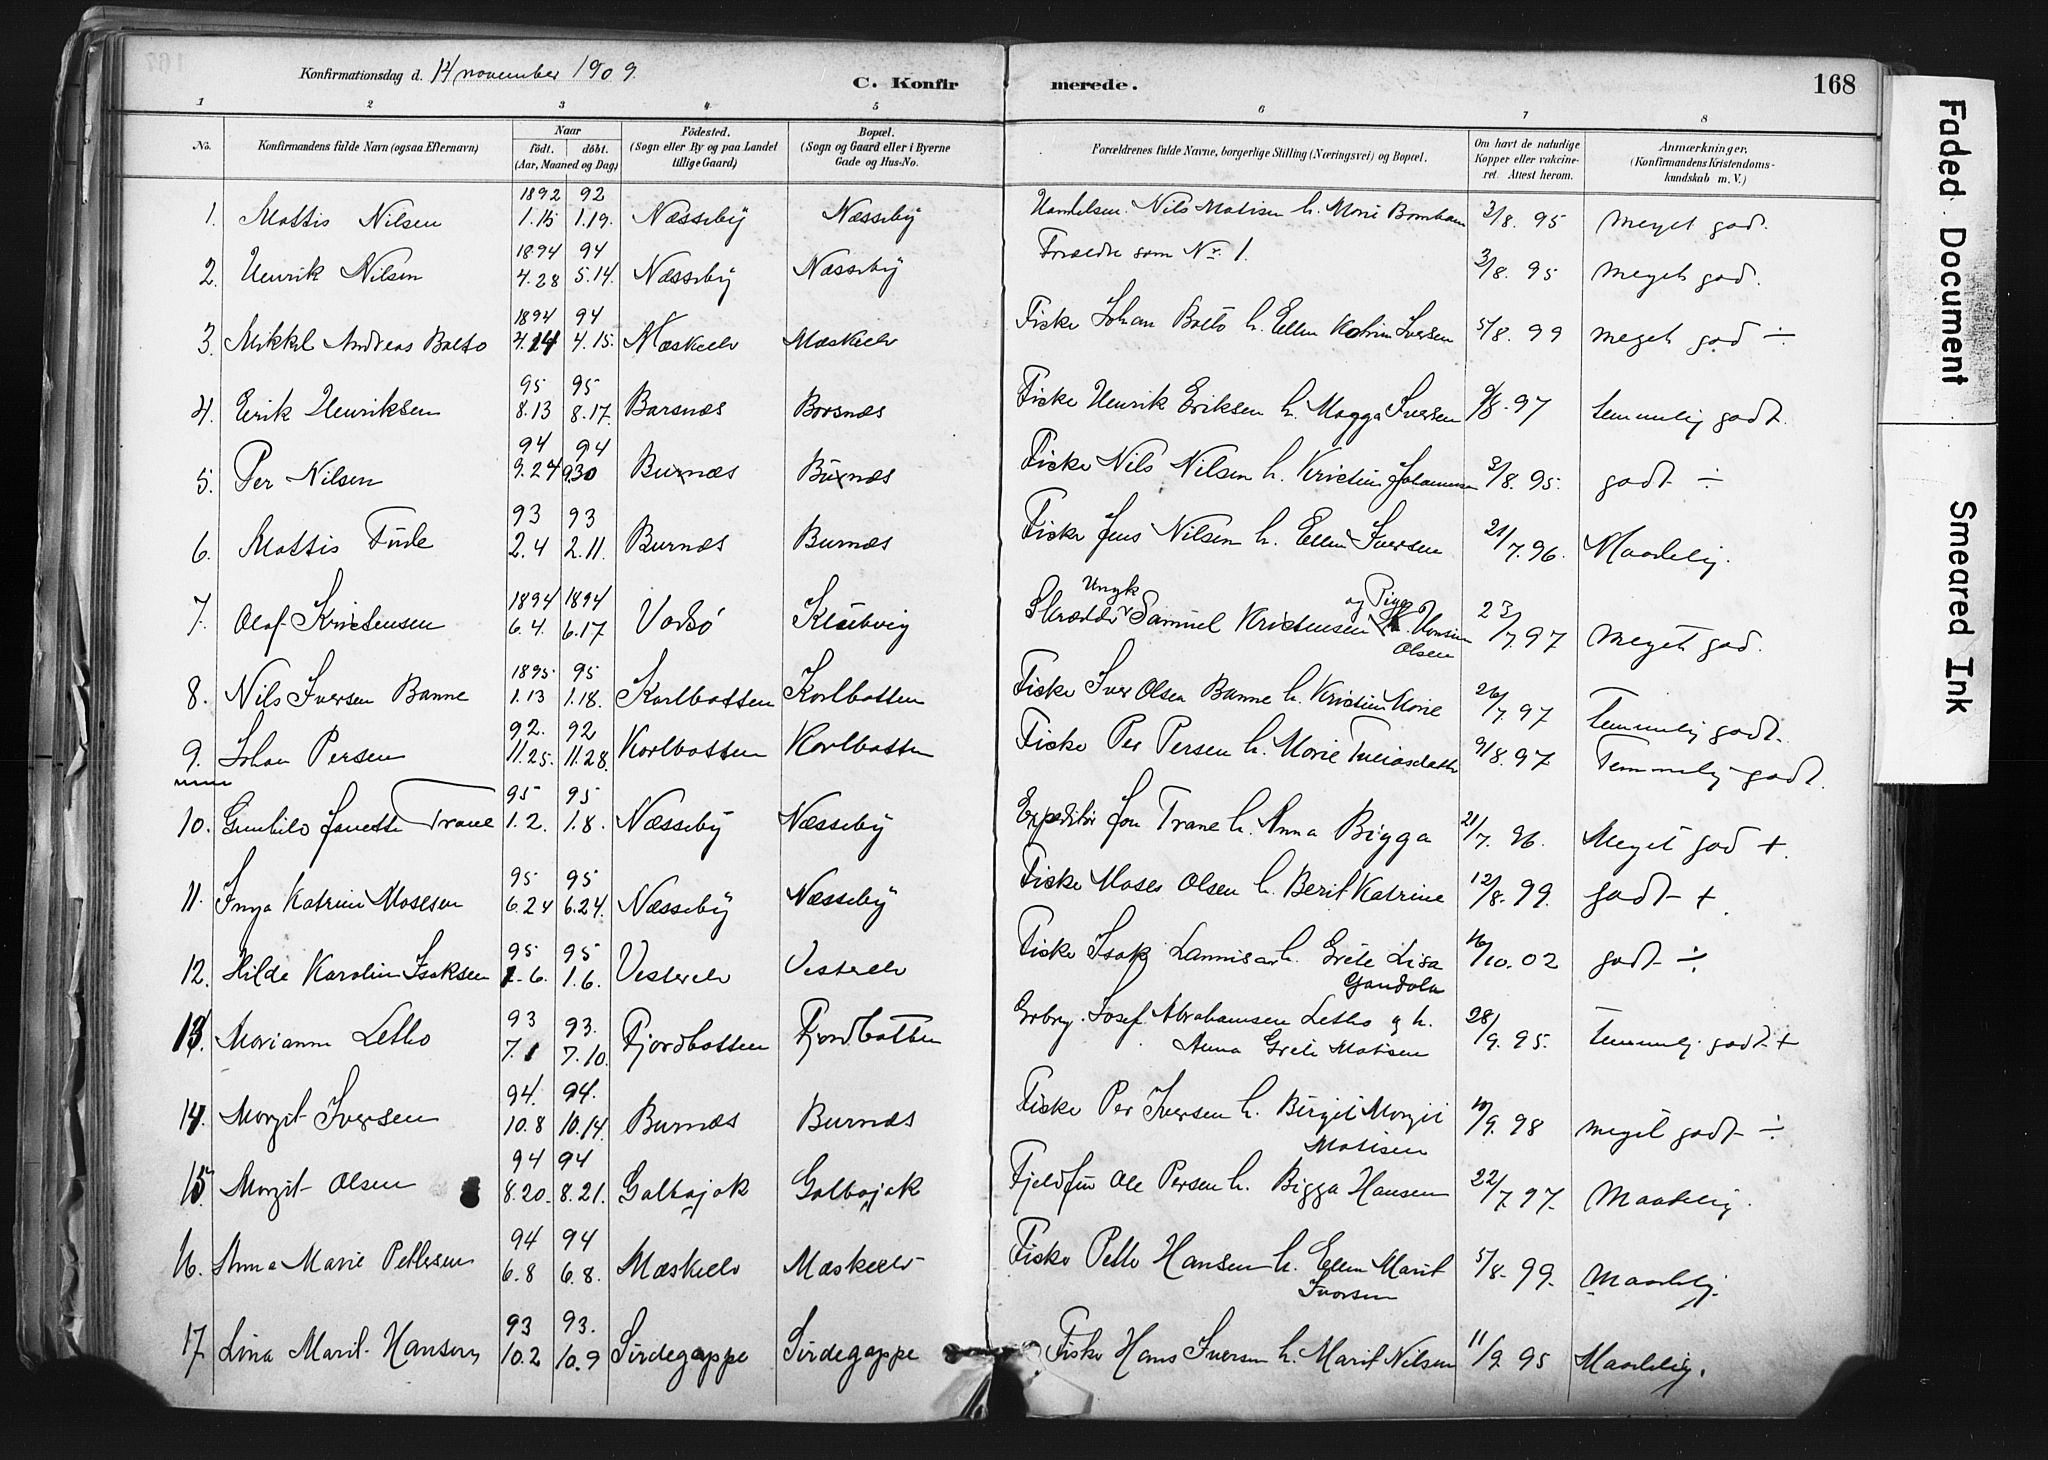 Konfirmationsdag d. 14 november 1909. C. Konfirmerede. 168
1 2 3 4 5 6 7 8
No. Konfirmandens fulde Navn (ogsaa Efternavn) Naar födt. döbt. (Aar, Maaned og Dag) Födested. (Sogn eller By og paa Landet tillige Gaard) Bopæl. (Sogn og Gaard eller i Byerne Gade og Hus-No. Forældrenes fulde Navne, borgerlige Stilling (Næringsvei) og Bopæl. Om havt de naturlige Kopper eller vakcineret. Attest herom. Anmærkninger. (Konfirmandens Kristendomskundskab m. V.)
1892 92
1. Mattis Nilsen 1.15 1.19. Næsseby Næsseby Nils Matisen h. Marie 3/8. 95 meget god.
1894 94
2. Henrik Nilsen 4.28 5.14. Næsseby Næsseby Forældre som Nr. 1. 3/8. 95 meget god.
1894 94
3. Mikkel Andreas Balto 4.14 4.15. Mæskelv Mæskelv Fisker Johan Balto h. Ellen Katrin Iversen 5/8. 99 meget god ÷
95 95
4. Erik Henriksen 8.13 8.17. Barsnæs Barsnæs Fisker Henrik Eriksen h. Magga Iversen 9/8. 97 temmelig godt.
94 94
5. Per Nilsen 9.24 9.30 Burnæs Burnæs Fisker Nils Nilsen h. Kristine Johannesen 3/8. 95. godt ÷
93 93
6. Mattis 2.4 2.11. Burnæs Burnæs Fisker Jens Nilsen h. Ellen Iversen 21/7. 96. Maadelig.
1894 1894 Ungk og Pige
7. Olaf Kristensen 6.4. 6.17 Vadsö Klubvig Skrædder Samuel Kristensen Olsen 23/7. 97 meget god.
1895 95
8. Nils Iversen Banne 1.13 1.18. Karlbotten Karlbotten Fisker Iver Olsen Banne h. Kristine Marie 26/7. 97 temmelig godt.
92. 92
9. Johan Persen 11.25. 11.28. Karlbotten Karlbotten Fisker Per Persen h. Marie 9/8. 97 Temmelig godt.
95 95
10. Gunhild Janette Trane 1.2. 1.8. Næsseby Næsseby Expeditör Jon Trane h. Anna Bigga 21/7. 96. Meget god +.
95 95
11. Inga Katrine Mosesen 6.24 6.24. Næsseby Næsseby Fisker Moses Olsen h. Berit Katrine 12/8. 99. godt +.
95 95
12. Hilde Karoline Isaksen 1.6. 1.6. Vesterelv Vesterelv Fisker Isak h. Grete Lisa 16/10. 02 godt ÷
93 93.
13. Marianne Letho 7.1 7.10. Fjordbotten Fjordbotten Grbrg. Josef Abrahamsen Letho og h. Anna Grete Matisen 28/9. 95. temmelig godt +
94. 94.
14. Margit Iversen 10.8 10.14. Burnæs Burnæs Fisker Per Iversen h. Birgit Margit Matisen 10/9. 98 meget godt ÷
94 94
15. Margit Olsen 8.20. 8.21. Galbajok Galbajok Fjeldfin Ole Persen h. Bigga Hansen 22/7. 97. Maadelig.
94 94
16. Anna Marie Pettersen 6.8 6.8. Mæskelv Mæskelv Fisker Hansen h. Ellen Marit Iversen 5/8. 99. Maadelig.
93 93.
17 Lina Marit Hansen 10.2 10.9 Sirdegoppe Sirdegoppe Fisker Hans Iversen h. Marit Nilsen 11/9. 95 Maadelig.
Faded Document Smeared Ink